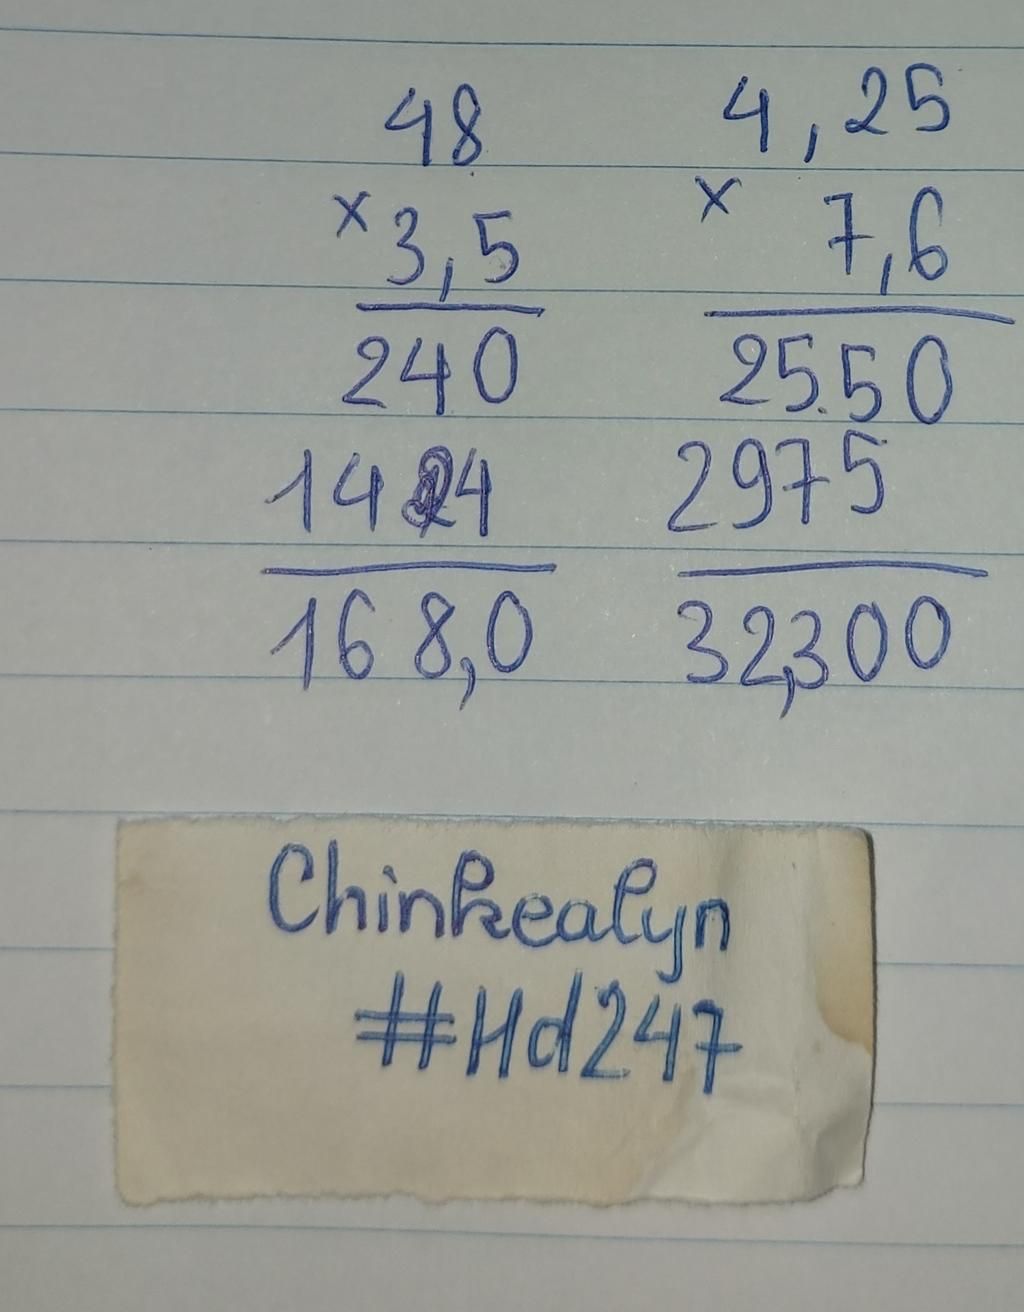 48
× 3,5
240
144
168,0
4,25
× 7,6
25.50
2975
32,300
Chinkealyn
#Hd247